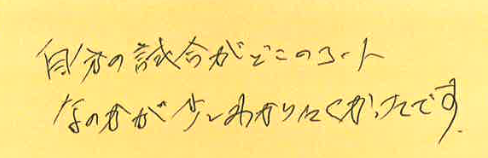 自分の試合がどこのコート
なのかが少しわかりにくかったです。